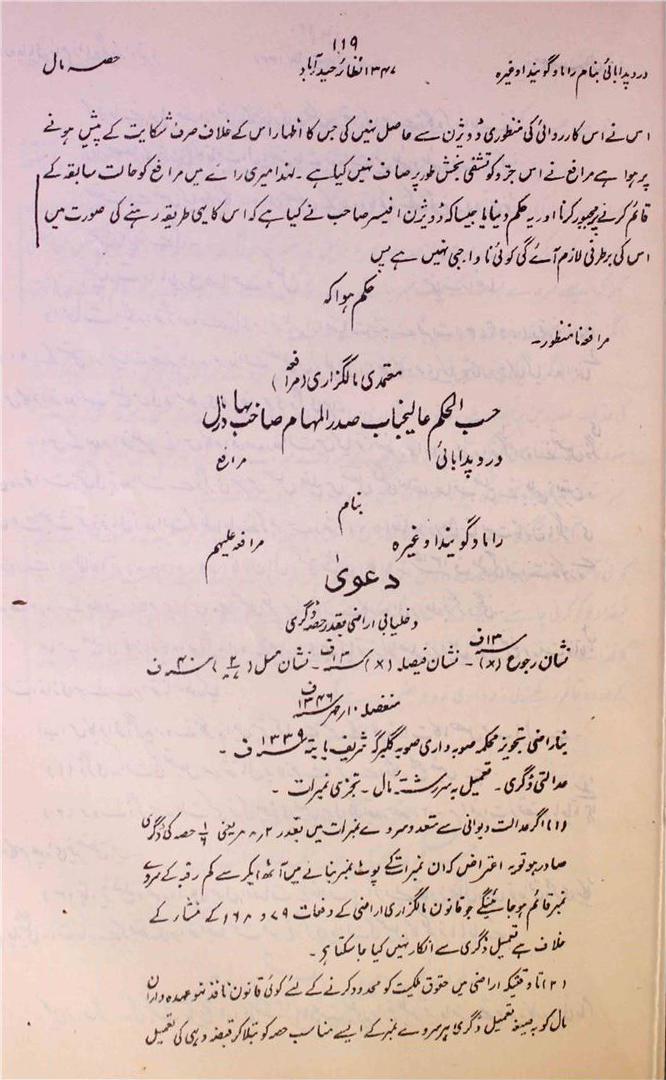 ۱۱۹
دروپدابائی بنام راناوگویندا وغیرہ
۱۳۴۷ نظائر حیدرآباد
حصہ مال
اس نے اس کارروائی کی منظوری ڈویژن سے حاصل نہیں کی جس کا اظہار اس کے خلاف صرف شکایت کے پیش ہونے
پر ہوا ہے مرافع نے اس جزو کو تشفی بخش طور پر صاف نہیں کیا ہے ۔ لہذا میری رائے میں مرافع کو حالت سابقہ کے
قائم کرنے پر مجبور کرنا اور یہ حکم دینا یا جیسا کہ ڈویژن افیسر صاحب نے کیا ہے کہ اس کا یہی طریقہ رہنے کی صورت میں
اس کی برطرفی لازم آئے گی کوئی ناواجبی نہیں ہے پس
حکم ہوا کہ
مرافعہ نامنظور ۔
معتمدی مالگزاری (مرافعہ)
حسب الحکم عالیجناب صدر المہام صاحب بہادر مال
دروپدابائی
مرافعہ
بنام
راناوگویندا وغیرہ
مرافعہ علیہم
دعویٰ
دخلیابی اراضی بقدر حصہ ڈگری
نشان رجوع (x) ۱۳ف ۔ نشان فیصلہ (x) ۱۳ف ۔ نشان مسل ۴۰ ف
منفصلہ ۱۰ ۱۳۴۶ف
بناراضی تجویز محکمہ صوبہ داری صوبہ گلبرگہ شریف بابتہ ۱۳۳۹ ف ۔
عدالتی ڈگری ۔ تعمیل بہ سررشتہ مال ۔ تجزی نمبرات ۔
(۱) اگر عدالت دیوانی سے متعدد سروے نمبرات میں بقدر ۲ ر ۸ یعنی ۱/۶ حصہ کی ڈگری
صادر ہو تو یہ اعتراض کہ ان نمبرات کے پوٹ نمبر بنانے میں آٹھ ایکر سے کم رقبہ کے سروے
نمبر قائم ہوجائینگے جو قانون مالگزاری اراضی کے دفعات ۷۹ و ۱۶۸ کے منشار کے
خلاف ہے تعمیل ڈگری سے انکار نہیں کیا جاسکتا ہے ۔
(۲) تا وقتیکہ اراضی میں حقوق ملکیت کو محدود کرنے کے لئے کوئی قانون نافذ نہو عہدہ داران
مال کو بہ صیغہ تعمیل ڈگری ہر سروے نمبر کے ایسے مناسب حصہ کو بتلا کر قبضہ دہی کی تعمیل